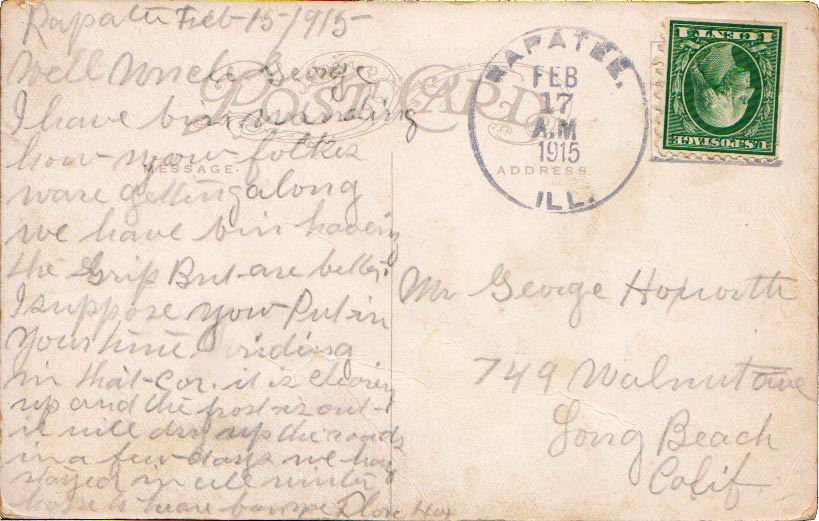 Rapatee Feb-15-1915
Well Uncle George
I have bin wanding
how yow folkes
ware getting along
we have bin having
the Grip But are better
I suppose yow Put in
Your time riding
in that Car. it is clearing
up and the frost is out
it will dry up the roads
in a few days we have
stayed in all winter
hope to heare from you Hox
POST CARD
MESSAGE
ADDRESS
RAPATEE.
FEB
17
A.M
1915
ILL.
1 CENT 1
U.S. POSTAGE
Mr George Hoxworth
749 Walnut ave
Long Beach
Calif